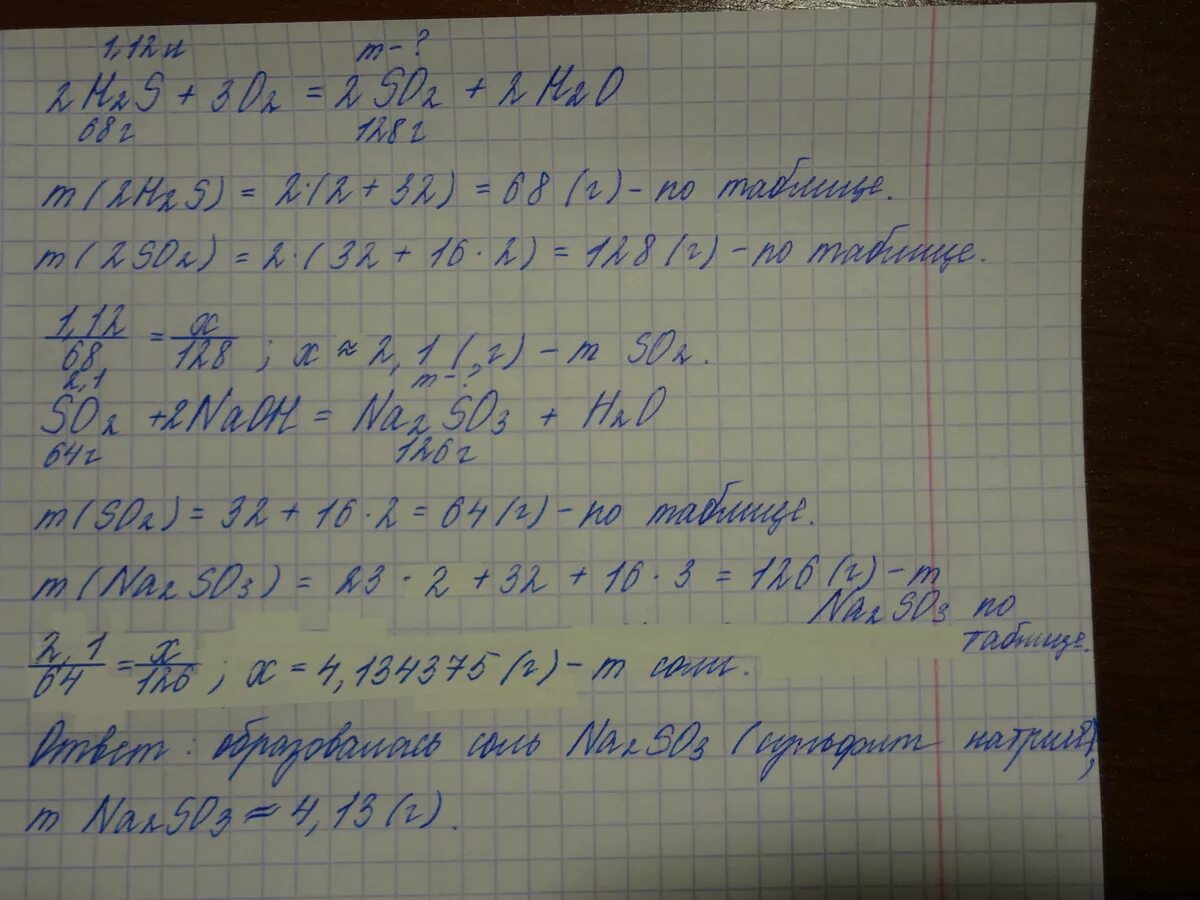 1,12л m - ?
2H₂S + 3O₂ = 2SO₂ + 2H₂O
68г 128г
m(2H₂S) = 2·(2 + 32) = 68 (г) - по таблице.
m(2SO₂) = 2·(32 + 16·2) = 128 (г) - по таблице.
1,12/68 = x/128 ; x ≈ 2,1 (г) - m SO₂.
2,1 m - ?
SO₂ + 2NaOH = Na₂SO₃ + H₂O
64г 126г
m(SO₂) = 32 + 16·2 = 64 (г) - по таблице.
m(Na₂SO₃) = 23·2 + 32 + 16·3 = 126 (г) - m
Na₂SO₃ по
таблице.
2,1/64 = x/126 ; x = 4,134375 (г) - m соли.
Ответ: образовалась соль Na₂SO₃ (сульфит натрия),
m Na₂SO₃ ≈ 4,13 (г).